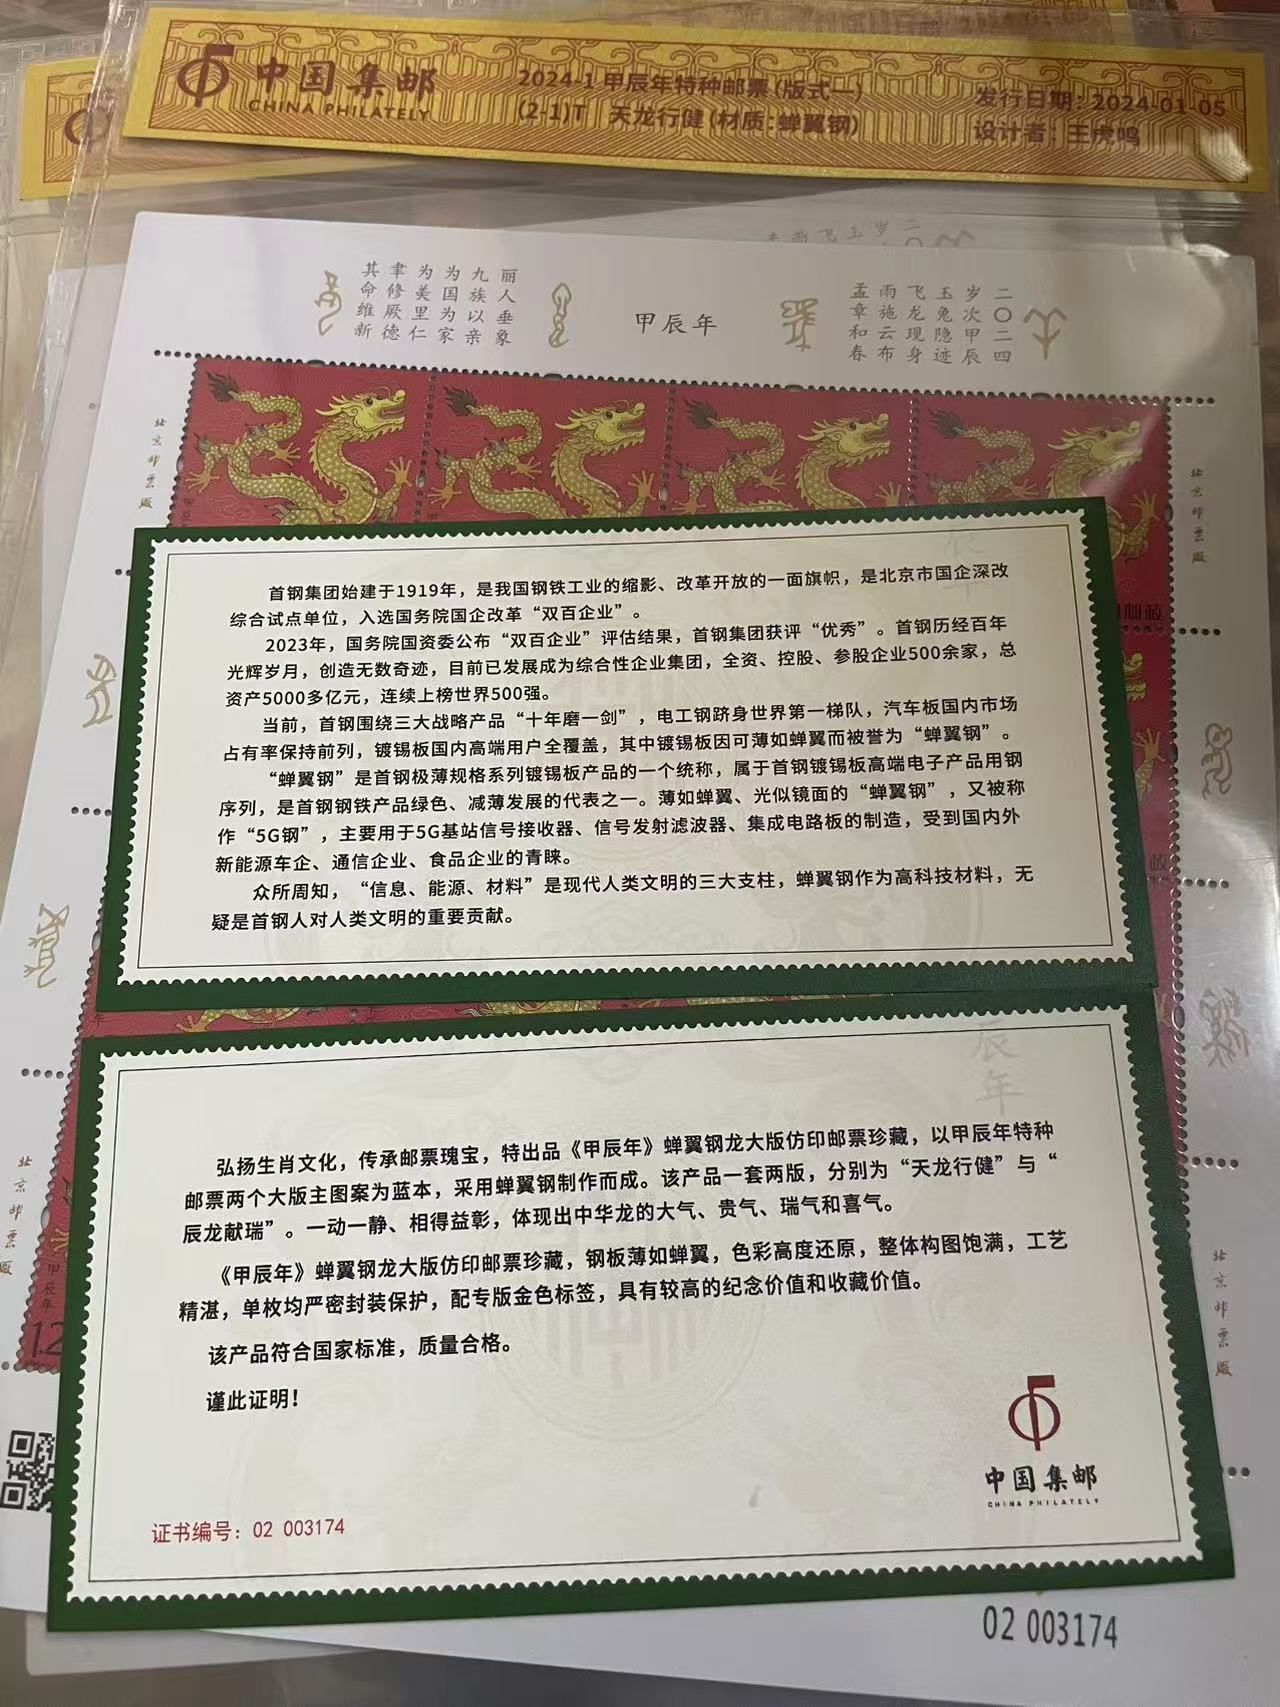 中国集邮
CHINA PHILATELY
2024-1 甲辰年特种邮票(版式一)
(2-1)T 天龙行健(材质:蝉翼钢)
发行日期：2024-01-05
设计者：王虎鸣
丽人垂象
九族以亲
为国为家
为美里仁
聿修厥德
其命维新
甲辰年
二〇二四
岁次甲辰
玉兔隐迹
飞龙现身
雨施云布
孟章和春
北京邮票厂
北京邮票厂
首钢集团始建于1919年，是我国钢铁工业的缩影、改革开放的一面旗帜，是北京市国企深改
综合试点单位，入选国务院国企改革“双百企业”。
2023年，国务院国资委公布“双百企业”评估结果，首钢集团获评“优秀”。首钢历经百年
光辉岁月，创造无数奇迹，目前已发展成为综合性企业集团，全资、控股、参股企业500余家，总
资产5000多亿元，连续上榜世界500强。
当前，首钢围绕三大战略产品“十年磨一剑”，电工钢跻身世界第一梯队，汽车板国内市场
占有率保持前列，镀锡板国内高端用户全覆盖，其中镀锡板因可薄如蝉翼而被誉为“蝉翼钢”。
“蝉翼钢”是首钢极薄规格系列镀锡板产品的一个统称，属于首钢镀锡板高端电子产品用钢
序列，是首钢钢铁产品绿色、减薄发展的代表之一。薄如蝉翼、光似镜面的“蝉翼钢”，又被称
作“5G钢”，主要用于5G基站信号接收器、信号发射滤波器、集成电路板的制造，受到国内外
新能源车企、通信企业、食品企业的青睐。
众所周知，“信息、能源、材料”是现代人类文明的三大支柱，蝉翼钢作为高科技材料，无
疑是首钢人对人类文明的重要贡献。
辰年
弘扬生肖文化，传承邮票瑰宝，特出品《甲辰年》蝉翼钢龙大版仿印邮票珍藏，以甲辰年特种
邮票两个大版主图案为蓝本，采用蝉翼钢制作而成。该产品一套两版，分别为“天龙行健”与“
辰龙献瑞”。一动一静、相得益彰，体现出中华龙的大气、贵气、瑞气和喜气。
《甲辰年》蝉翼钢龙大版仿印邮票珍藏，钢板薄如蝉翼，色彩高度还原，整体构图饱满，工艺
精湛，单枚均严密封装保护，配专版金色标签，具有较高的纪念价值和收藏价值。
该产品符合国家标准，质量合格。
谨此证明！
中国集邮
CHINA PHILATELY
证书编号：02 003174
北京邮票厂
北京邮票厂
甲辰年
1.2
02 003174